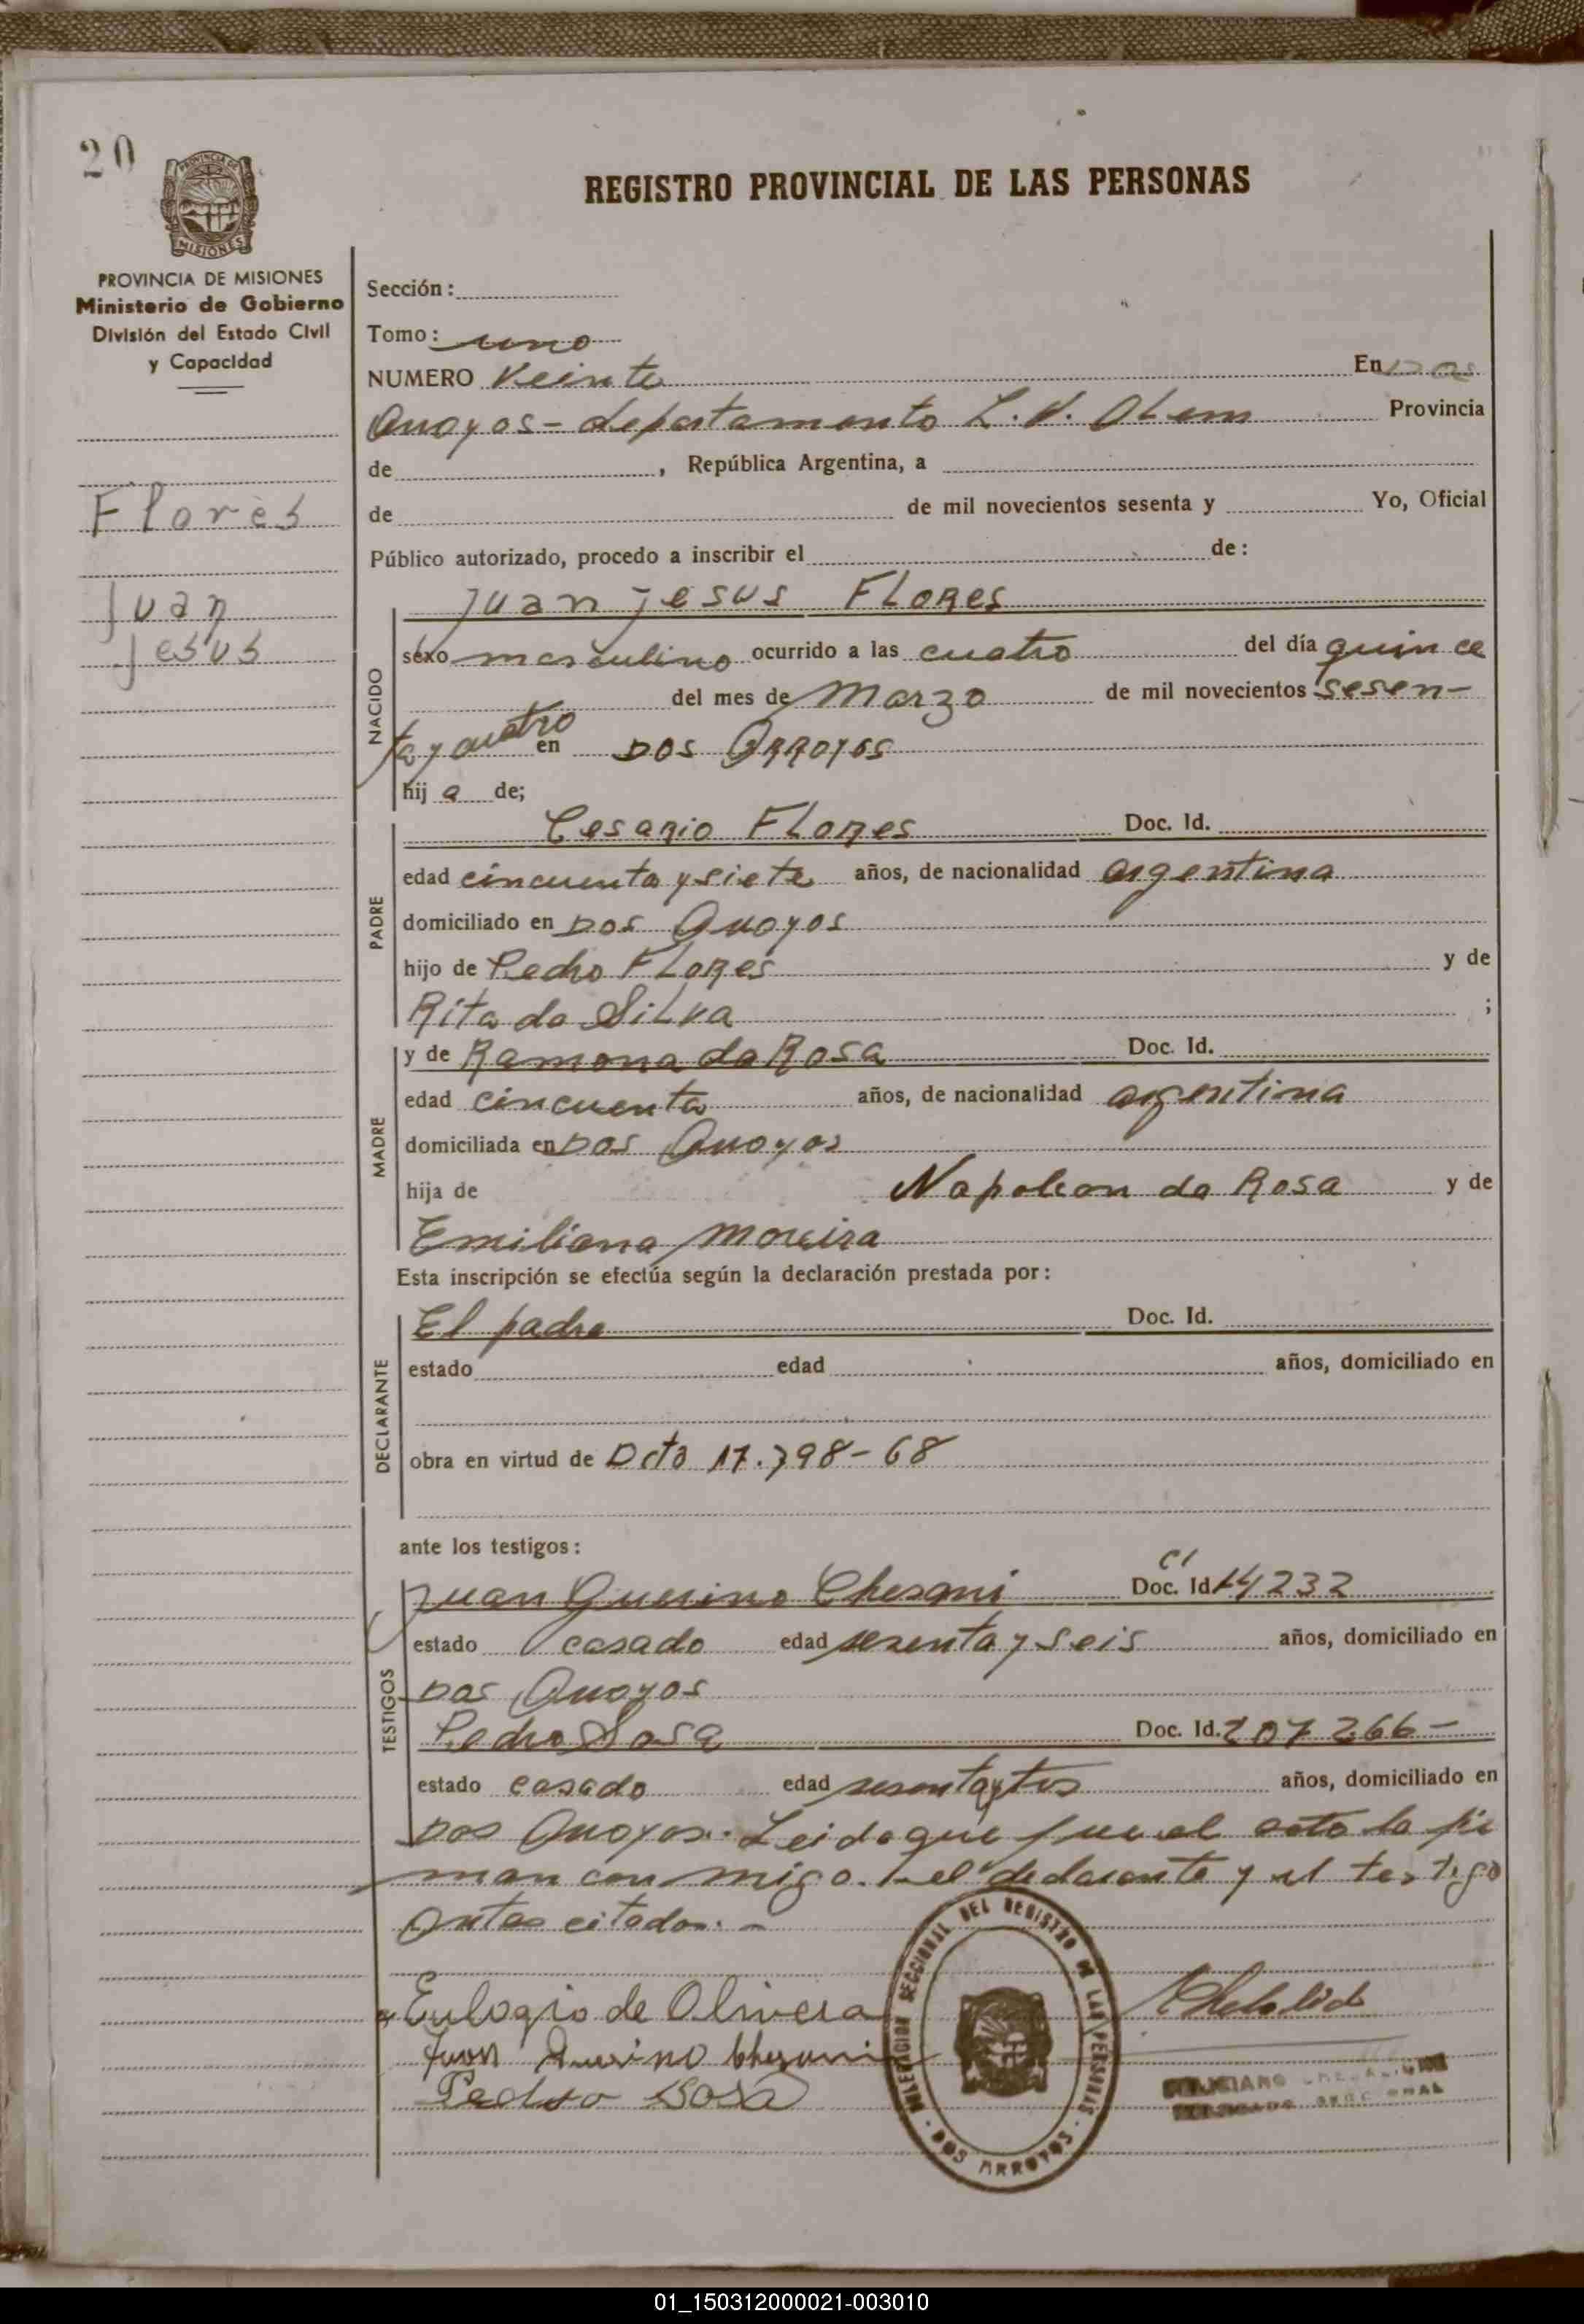 20
PROVINCIA DE
MISIONES
PROVINCIA DE MISIONES
Ministerio de Gobierno
División del Estado Civil
y Capacidad
Flores
Juan
Jesus
REGISTRO PROVINCIAL DE LAS PERSONAS
Sección:
Tomo: uno
NUMERO Veinte En Dos
Arroyos - departamento L. N. Alem Provincia
de , República Argentina, a
de de mil novecientos sesenta y Yo, Oficial
Público autorizado, procedo a inscribir el de:
NACIDO
Juan Jesus FLORES
sexo masculino ocurrido a las cuatro del día quince
del mes de Marzo de mil novecientos sesen-
ta y cuatro en Dos Arroyos
hij a de;
PADRE
Cesario FLORES Doc. Id.
edad cincuenta y siete años, de nacionalidad argentina
domiciliado en Dos Arroyos
hijo de Pedro FLORES y de
Rita da Silva ;
MADRE
y de Ramona da Rosa Doc. Id.
edad cincuenta años, de nacionalidad argentina
domiciliada en Dos Arroyos
hija de Napoleon da Rosa y de
Emiliana Moreira
Esta inscripción se efectúa según la declaración prestada por:
DECLARANTE
El padre Doc. Id.
estado edad años, domiciliado en
obra en virtud de Dcto 17.798-68
ante los testigos:
TESTIGOS
Juan Guerino Chesani Doc. Id. CI 14232
estado casado edad sesenta y seis años, domiciliado en
Dos Arroyos
Pedro Sosa Doc. Id. 207266-
estado casado edad sesenta y tres años, domiciliado en
Dos Arroyos. Leida que fue el acta la fir
man con migo. el declarante y el testigo
antes citados. -
Eulogio de Olivera
Juan Guerino Chesani
Pedro Sosa
DELEGACION SECCIONAL DEL REGISTRO DE LAS PERSONAS
DOS ARROYOS
01_150312000021-003010